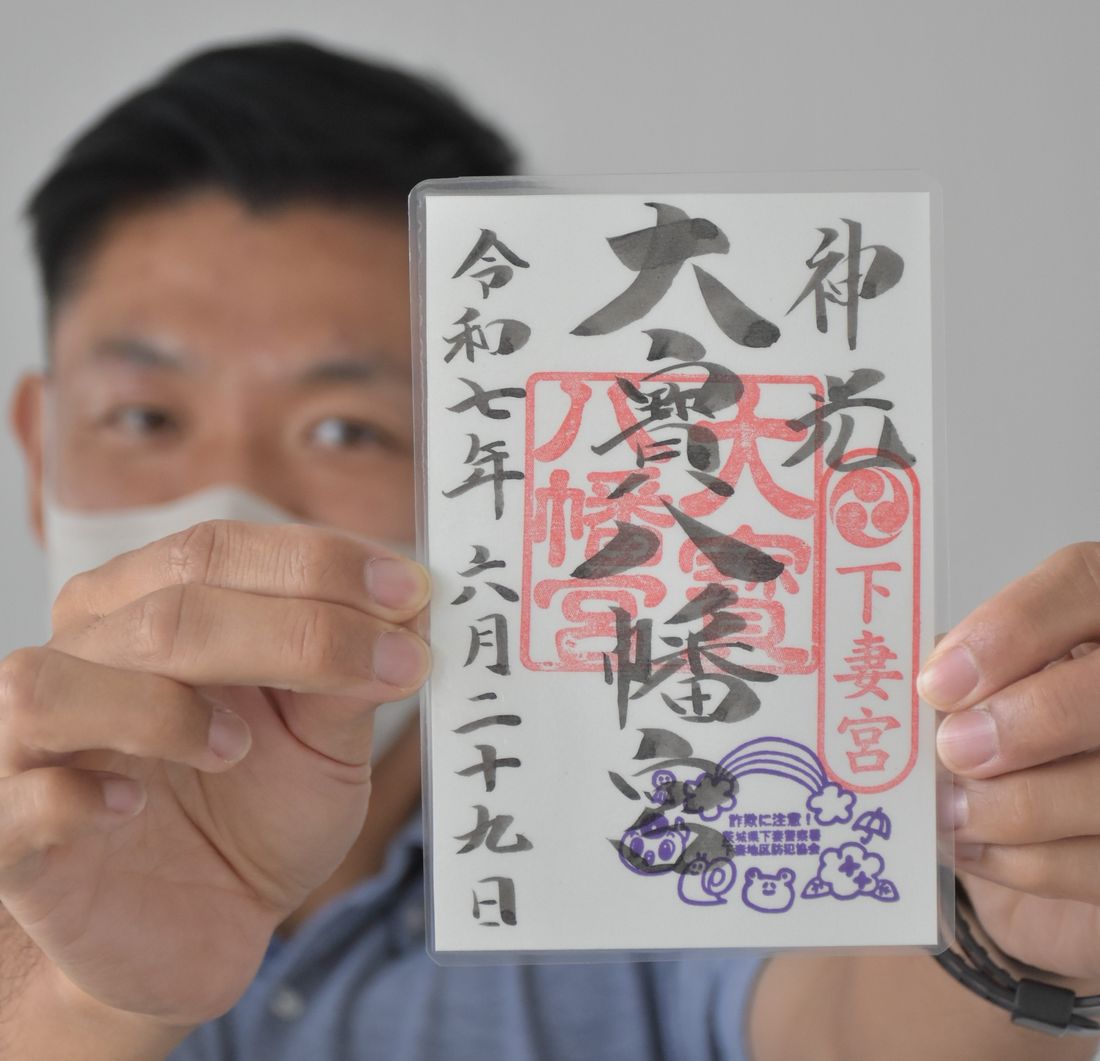 神光
大寳八幡宮
令和七年六月二十九日
大寳
八幡宮
下妻宮
詐欺に注意！
茨城県下妻警察署
下妻地区防犯協会